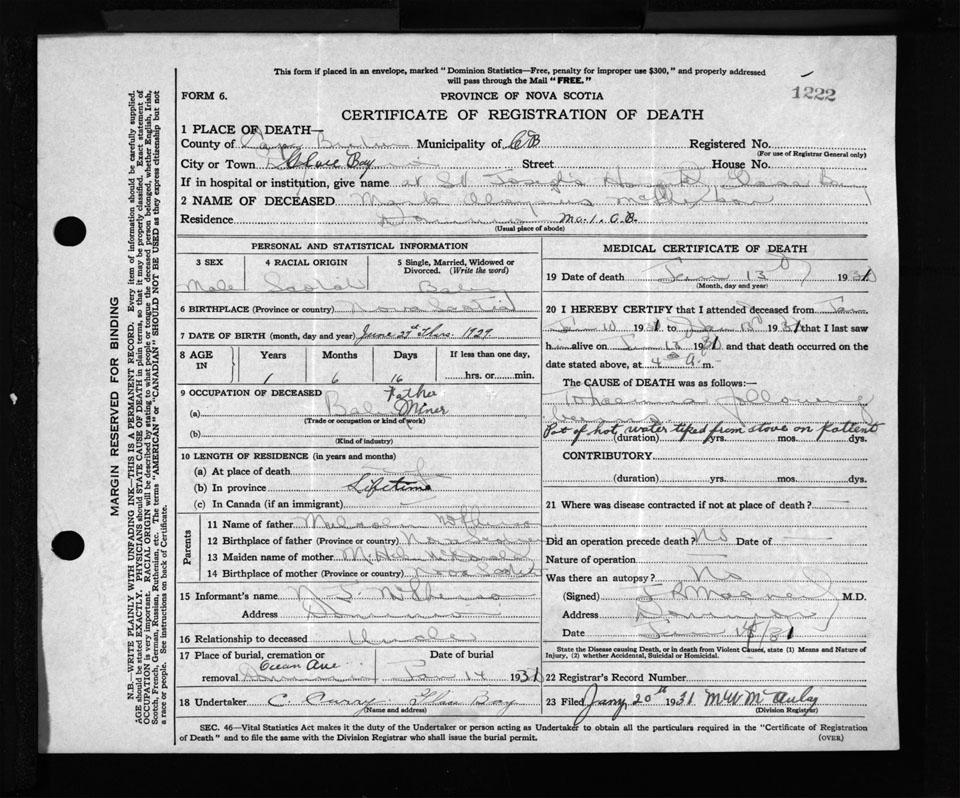 This form if placed in an envelope, marked "Dominion Statistics—Free, penalty for improper use $300," and properly addressed
will pass through the Mail "FREE."
1222
FORM 6.
PROVINCE OF NOVA SCOTIA
CERTIFICATE OF REGISTRATION OF DEATH
1 PLACE OF DEATH—
County of Cape Breton Municipality of CB Registered No.
(For use of Registrar General only)
City or Town Glace Bay Street House No.
If in hospital or institution, give name at St Joseph's Hospital, Glace Bay
2 NAME OF DECEASED Mark
Residence Dominion No. 1. C.B.
(Usual place of abode)
PERSONAL AND STATISTICAL INFORMATION
3 SEX 4 RACIAL ORIGIN 5 Single, Married, Widowed or Divorced. (Write the word)
Male Scotch Baby
6 BIRTHPLACE (Province or country) Nova Scotia
7 DATE OF BIRTH (month, day and year) June 27th Thrs. 1929
8 AGE IN Years Months Days If less than one day,
1 6 16 hrs. or min.
9 OCCUPATION OF DECEASED Father
(a) Baby Miner
(Trade or occupation or kind of work)
(b)
(Kind of industry)
10 LENGTH OF RESIDENCE (in years and months)
(a) At place of death
(b) In province Lifetime
(c) In Canada (if an immigrant)
Parents
11 Name of father Malcolm McPherson
12 Birthplace of father (Province or country) Nova Scotia
13 Maiden name of mother McDonald
14 Birthplace of mother (Province or country) Nova Scotia
15 Informant's name McPherson
Address Dominion
16 Relationship to deceased Uncle
17 Place of burial, cremation or Date of burial
Ocean Ave
removal Dominion Jan 14 1931
18 Undertaker C. Curry Glace Bay
(Name and address)
MEDICAL CERTIFICATE OF DEATH
19 Date of death Jan 13 1931
(Month, day and year)
20 I HEREBY CERTIFY that I attended deceased from Jan
Jan 10 1931 to Jan 13 1931 that I last saw
h alive on Jan 13 1931 and that death occurred on the
date stated above, at 4 a. m.
The CAUSE of DEATH was as follows:—
following
Pot of hot water tiped from stove on Patient
(duration) yrs. mos. dys.
CONTRIBUTORY
(duration) yrs. mos. dys.
21 Where was disease contracted if not at place of death?
Did an operation precede death? No Date of
Nature of operation
Was there an autopsy? No
(Signed) M.D.
Address Dominion
Date Jan 1931
State the Disease causing Death, or in death from Violent Causes, state (1) Means and Nature of
Injury, (2) whether Accidental, Suicidal or Homicidal.
22 Registrar's Record Number
23 Filed Jany 20th 1931 McAulay
(Division Registrar)
SEC. 46—Vital Statistics Act makes it the duty of the Undertaker or person acting as Undertaker to obtain all the particulars required in the "Certificate of Registration
of Death" and to file the same with the Division Registrar who shall issue the burial permit. (OVER)
MARGIN RESERVED FOR BINDING
N.B.—WRITE PLAINLY WITH UNFADING INK—THIS IS A PERMANENT RECORD. Every item of information should be carefully supplied.
AGE should be stated EXACTLY. PHYSICIANS should STATE CAUSE OF DEATH in plain terms, so that it may be properly classified. Exact statement of
OCCUPATION is very important. RACIAL ORIGIN will be described by stating to what people or tongue the deceased person belonged, whether English, Irish,
Scotch, French, German, Russian, Ruthenian, etc. The terms "AMERICAN" or "CANADIAN" SHOULD NOT BE USED as they express citizenship but not
a race or people. See instructions on back of Certificate.